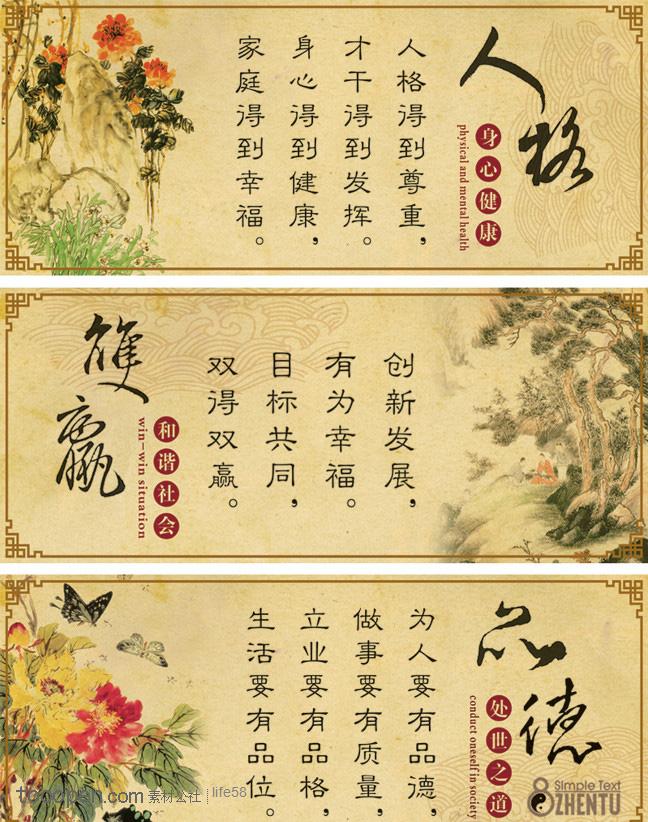 人格
身心健康
physical and mental health
人格得到尊重，
才干得到发挥。
身心得到健康，
家庭得到幸福。
雙贏
和谐社会
win-win situation
创新发展，
有为幸福。
目标共同，
双得双赢。
品德
处世之道
conduct oneself in society
为人要有品德，
做事要有质量，
立业要有品格，
生活要有品位。
素材公社 life58
Simple Text
ZHENTU